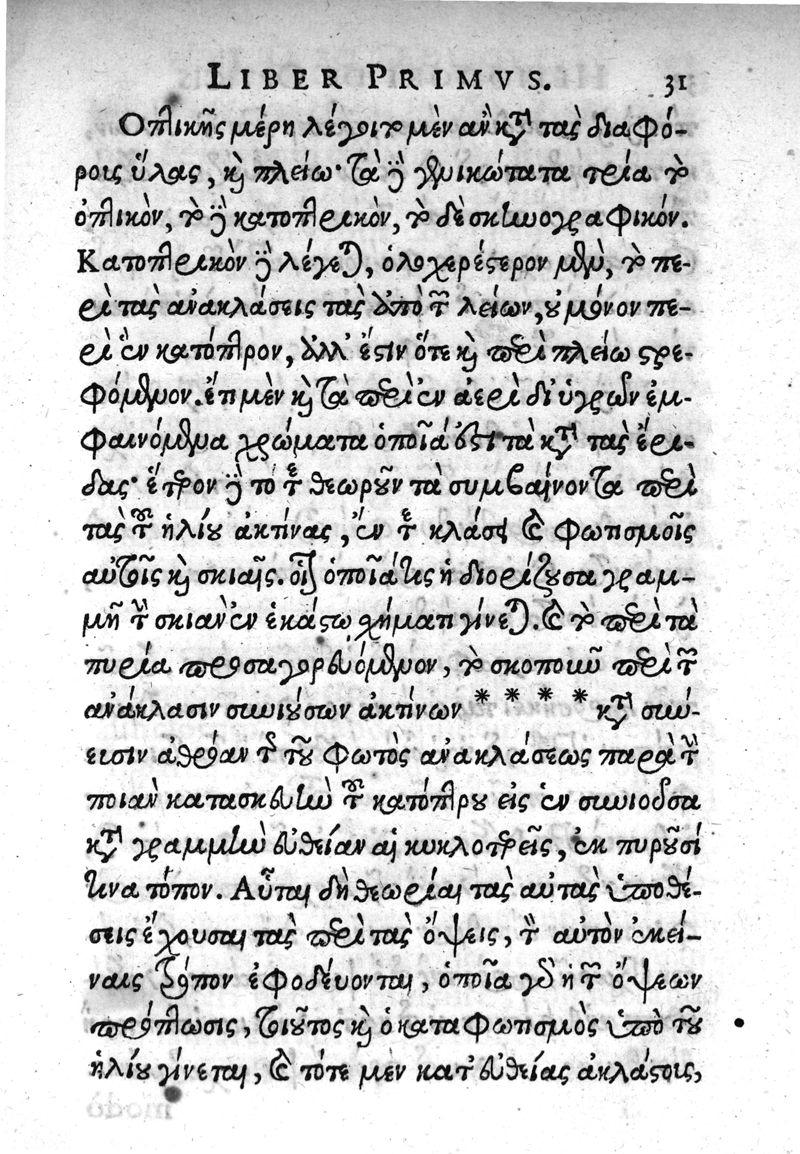 LIBER PRIMVS. 31
Ὀπτικῆς μέρη λέγοιτο μὲν ἂν κατὰ τὰς διαφό-
ροις ὕλας, καὶ πλείω· τὰ δὲ γενικώτατα τρία τὸ
ὀπτικὸν, τὸ δὲ κατοπτρικὸν, τὸ δὲ σκηνογραφικόν.
Κατοπτρικὸν δὲ λέγεται, ὁλοχερέστερον μὲν, τὸ πε-
ρὶ τὰς ἀνακλάσεις τὰς ἀπὸ τῶν λείων, οὐ μόνον πε-
ρὶ ἓν κατόπτρον, ἀλλ' ἔστιν ὅτε καὶ περὶ πλείω στρε-
φόμενον. ἔτι μὲν καὶ τὰ περὶ ἐν ἀερὶ δι' ὑγρῶν ἐμ-
φαινόμενα χρώματα ὁποῖά ἐστι τὰ κατὰ τὰς ἔρι-
δας· ἕτερον δὲ τὸ τε θεωροῦν τὰ συμβαίνοντα περὶ
τὰς τοῦ ἡλίου ἀκτίνας, ἐν τε κλάσει καὶ φωτισμοῖς
αὐτοῖς καὶ σκιαῖς. οἷον ὁποῖά τις ἡ διορίζουσα γραμ-
μὴ τὴν σκιὰν ἐν ἑκάστῳ χήματι γίνεται. καὶ τὸ περὶ τὰ
πυρία προσαγορευόμενον, τὸ σκοποιοῦ περὶ τῶν
ἀνάκλασιν συνιουσῶν ἀκτίνων **** κατὰ σύν-
εισιν ἀθρόαν τε τοῦ φωτὸς ἀνακλάσεως παρὰ τὴν
ποιὰν κατασκευὴν τοῦ κατόπτρου εἰς ἓν συνιοῦσα
κατὰ γραμμὴν εὐθεῖαν αἱ κυκλοτερεῖς, ἐκ πυροῦσί
τινα τόπον. Αὗται δὴ θεωρίαι τὰς αὐτὰς ὑποθέ-
σεις ἔχουσαι τὰς περὶ τὰς ὄψεις, τὸν αὐτὸν ἐκεί-
ναις τρόπον ἐφοδεύονται, ὁποῖα γὰρ ἡ τῶν ὄψεων
πρόπτωσις, τοιοῦτος καὶ ὁ καταφωτισμὸς ὑπὸ τοῦ
ἡλίου γίνεται, καὶ τότε μὲν κατ' εὐθείας ἀκλάστοις,